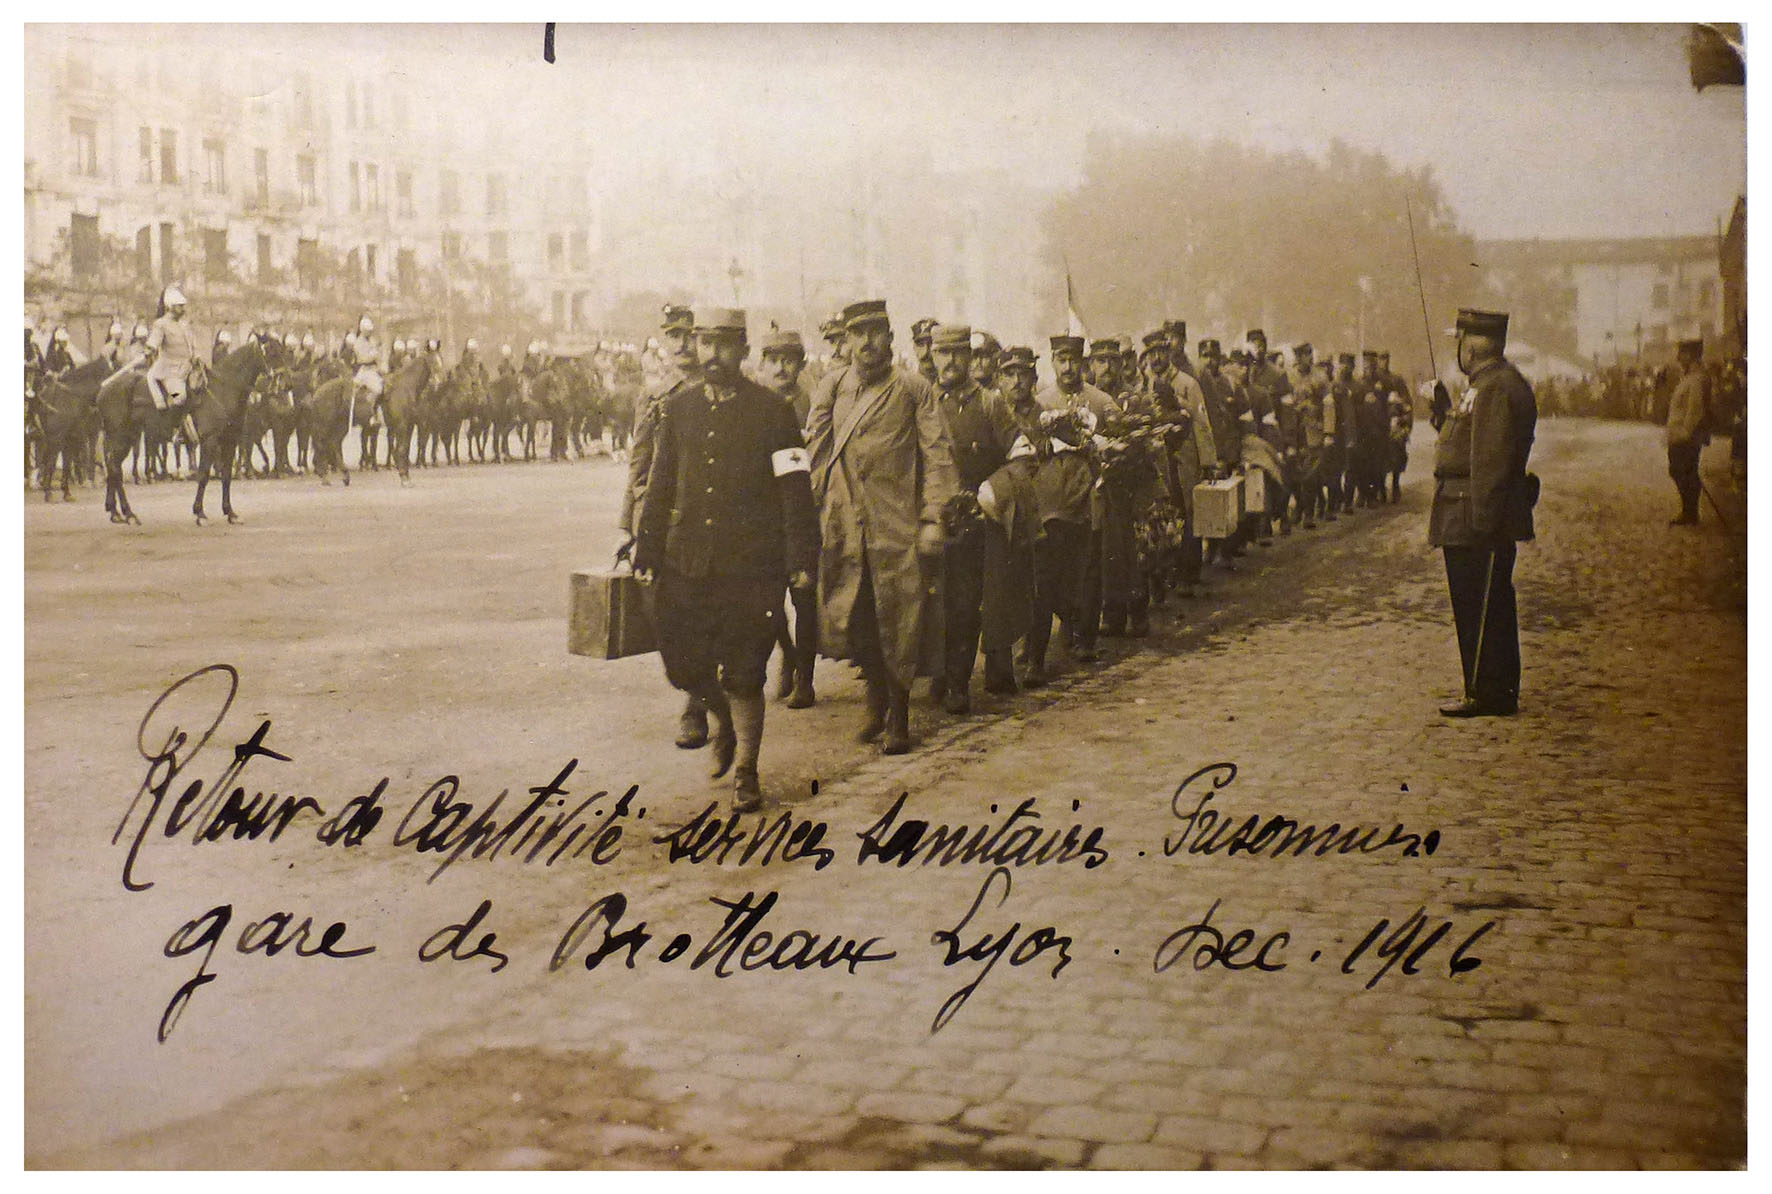 Retour de Captivité services sanitaires. Prisonniers
gare des Brotteaux Lyon. Dec. 1916